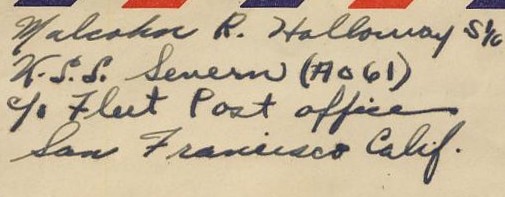 Malcohn R. Holloway S1/c
U.S.S. Severn (AO61)
c/o Fleet Post office
San Francisco Calif.